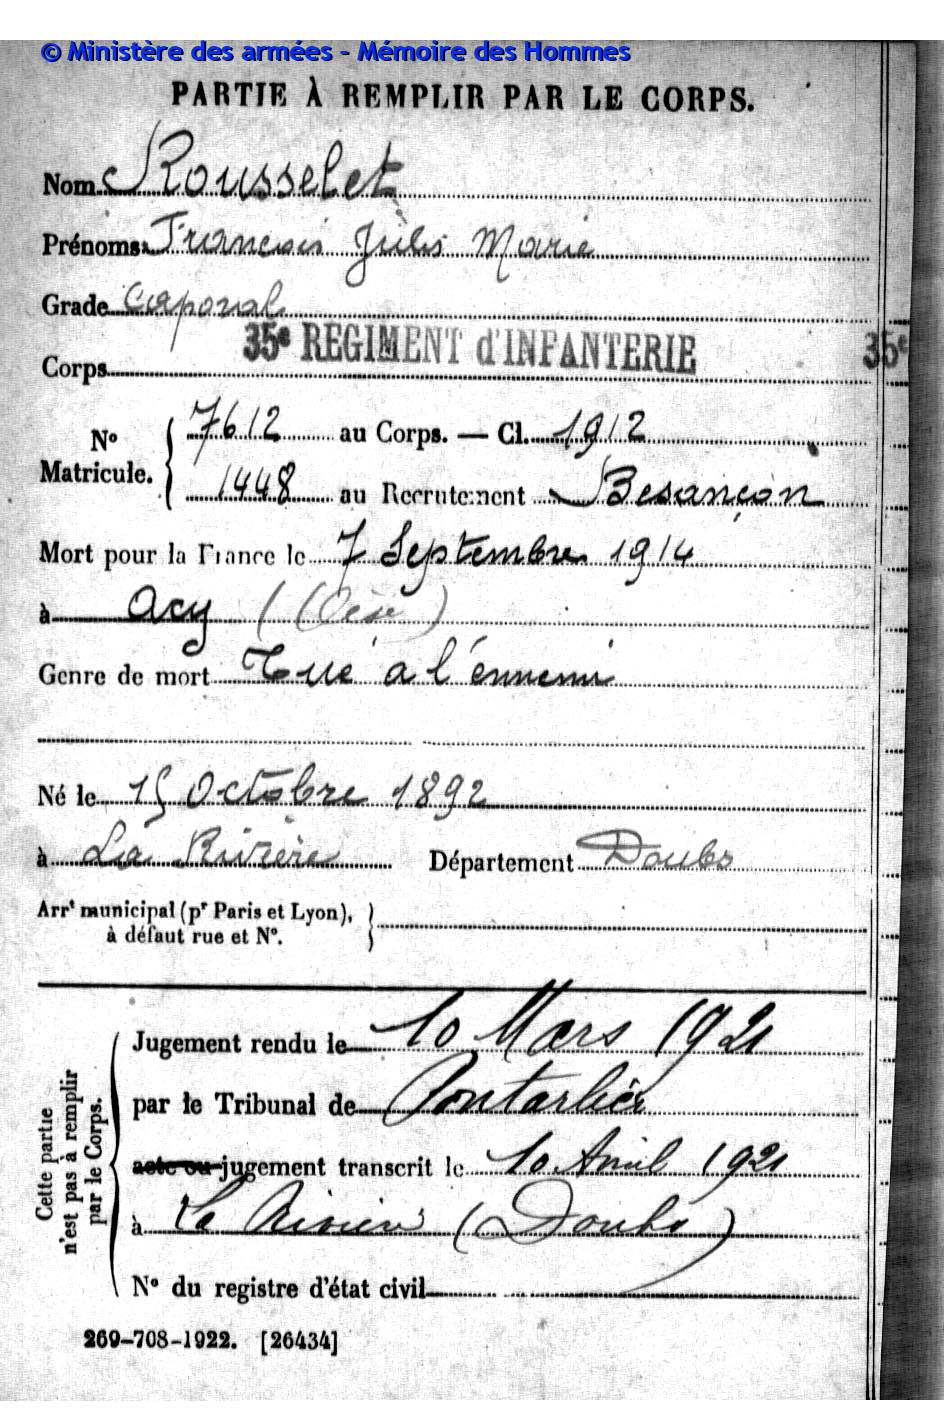 © Ministère des armées - Mémoire des Hommes
PARTIE À REMPLIR PAR LE CORPS.
Nom Rousselet
Prénoms François Jules Marie
Grade Caporal
35e RÉGIMENT d'INFANTERIE 35e
Corps
No Matricule. { 7612 au Corps. — Cl. 1912
1448 au Recrutement Besançon
Mort pour la France le 7 Septembre 1914
à Acy (Oise)
Genre de mort Tué à l'ennemi
Né le 15 Octobre 1892
à La Rivière Département Doubs
Arrt municipal (pr Paris et Lyon), }
à défaut rue et No.
Cette partie n'est pas à remplir par le Corps.
Jugement rendu le 10 Mars 1921
par le Tribunal de Pontarlier
acte ou jugement transcrit le 10 Avril 1921
à La Rivière (Doubs)
No du registre d'état civil
269-708-1922. [26434]